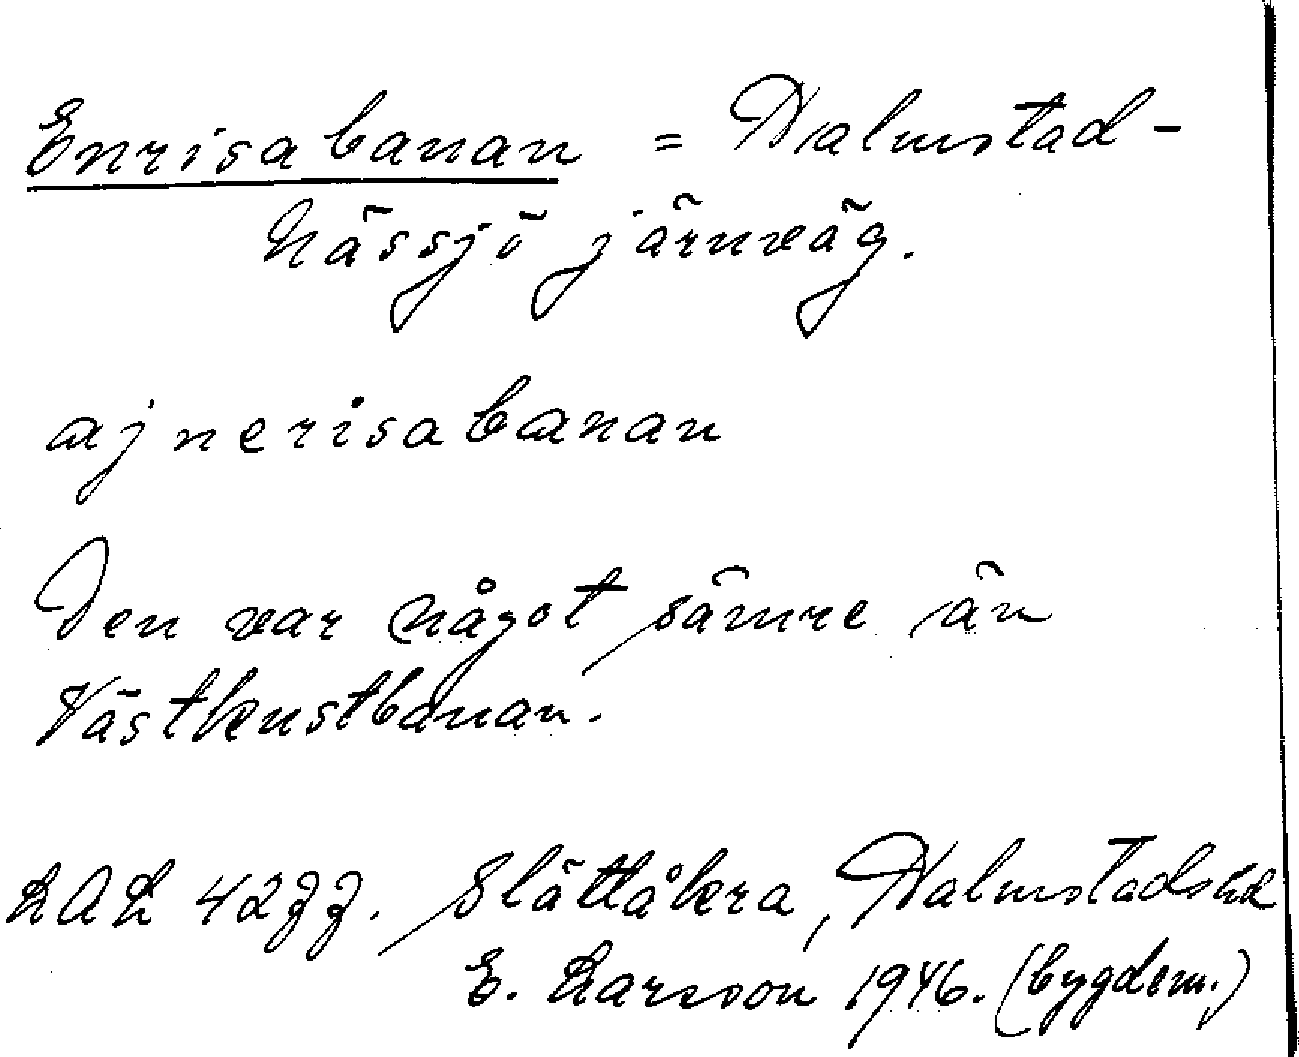 Enrisabanan = Halmstad-
Nässjö järnväg.
ajnerisabanan
Den var något sämre än
Västkustbanan.
LAL 4277. Slättåkra, Halmstads hd
E. Larsson 1946. (bygdem.)